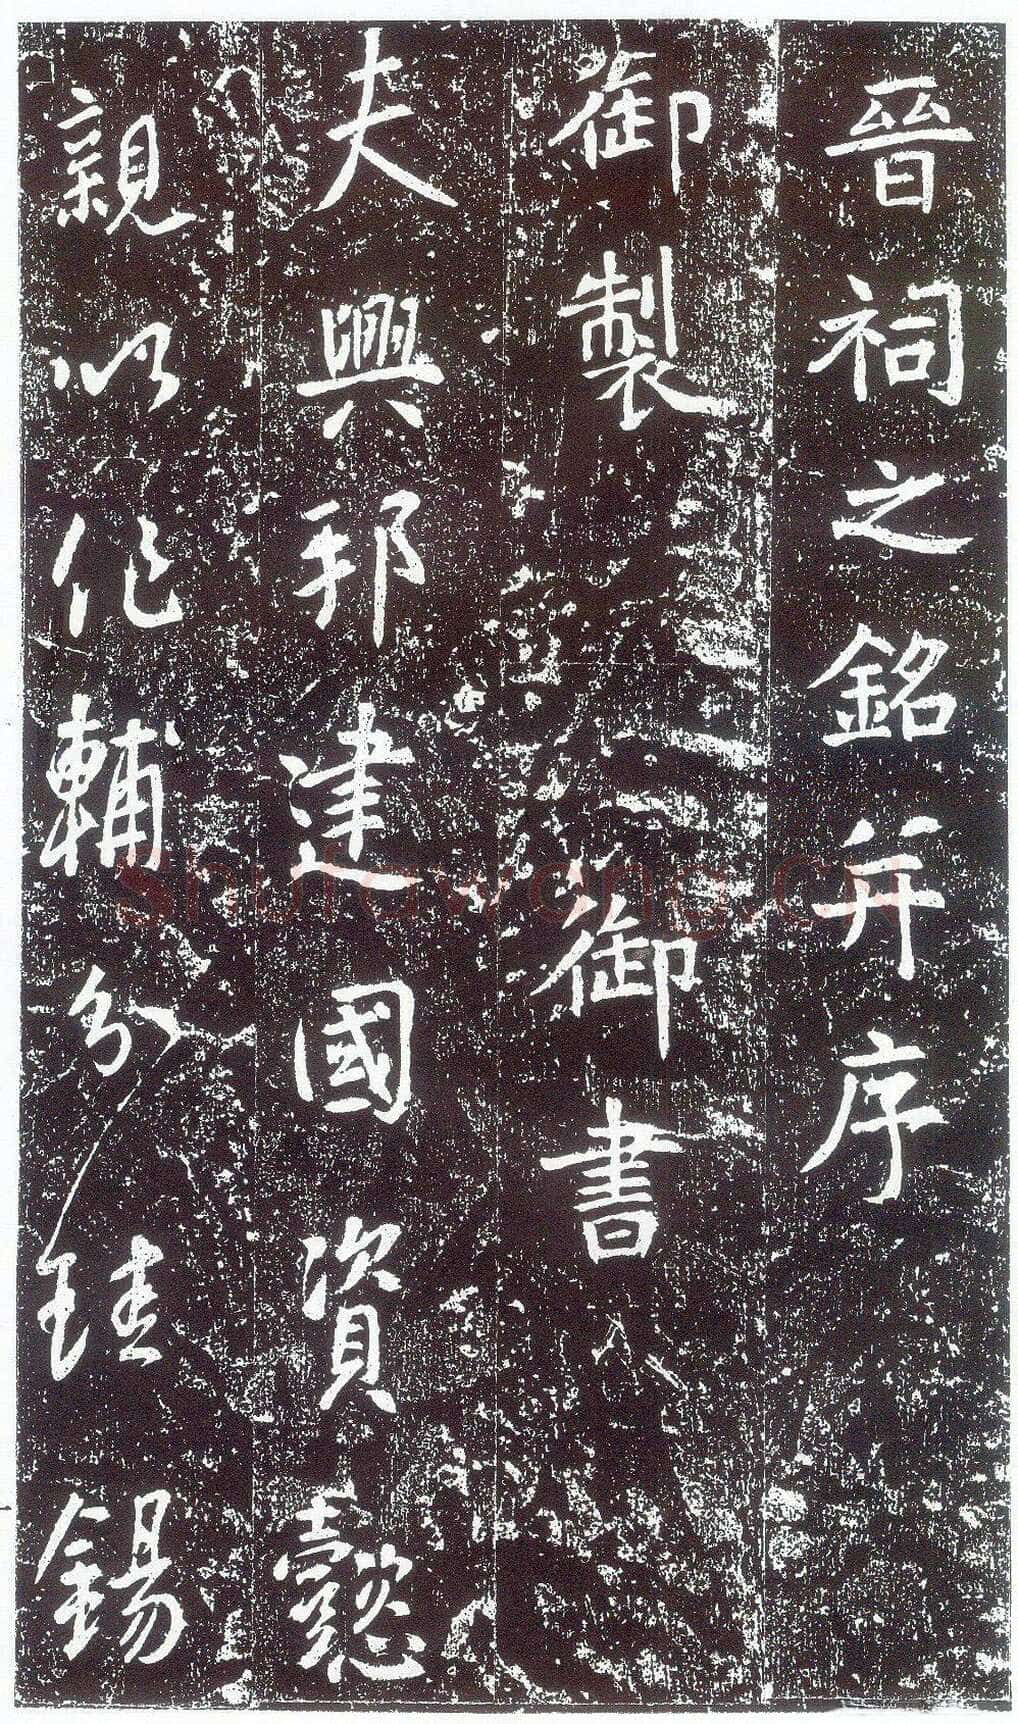 晉祠之銘并序
御製 御書
夫興邦建國資懿
親以作輔分珪錫
shufawang.CN